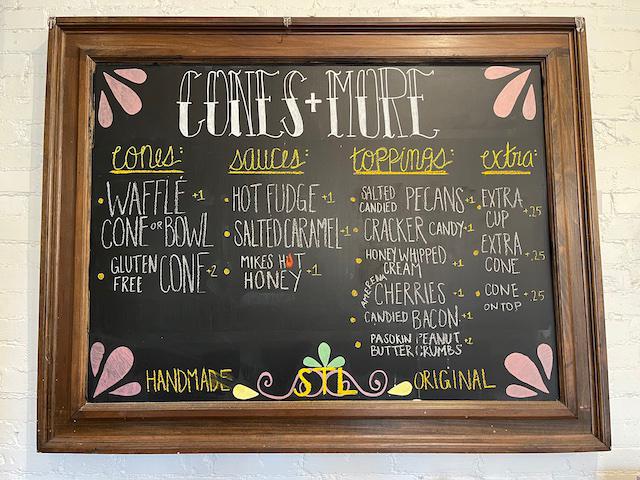 CONES + MORE
cones:
WAFFLE +1
CONE OR BOWL
GLUTEN FREE CONE +2
sauces:
HOT FUDGE +1
SALTED CARAMEL +1
MIKES HOT
HONEY +1
toppings:
SALTED CANDIED PECANS +1
CRACKER CANDY +1
HONEY WHIPPED
CREAM +1
AMERENA CHERRIES +1
CANDIED BACON +1
PASOKIN PEANUT
BUTTER CRUMBS
extra:
EXTRA
CUP +.25
EXTRA
CONE +.25
CONE +.25
ON TOP
HANDMADE STL ORIGINAL